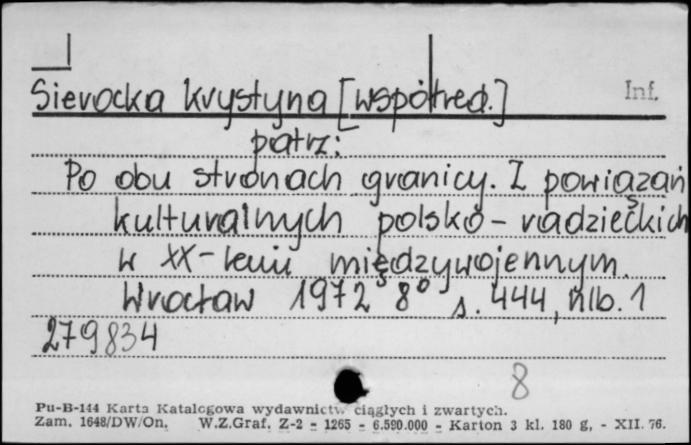 Sierocka Krystyna [współred.] Inf.
patrz:
Po obu stronach granicy. Z powiązań
kulturalnych polsko - radzieckich
w XX-leciu międzywojennym.
Wrocław 1972 8° s. 444, nlb. 1
279834
8
Pu-B-144 Karta Katalogowa wydawnictw ciągłych i zwartych.
Zam. 1648/DW/On. W.Z.Graf. Z-2 - 1265 - 6.590.000 - Karton 3 kl. 180 g, - XII. 76.